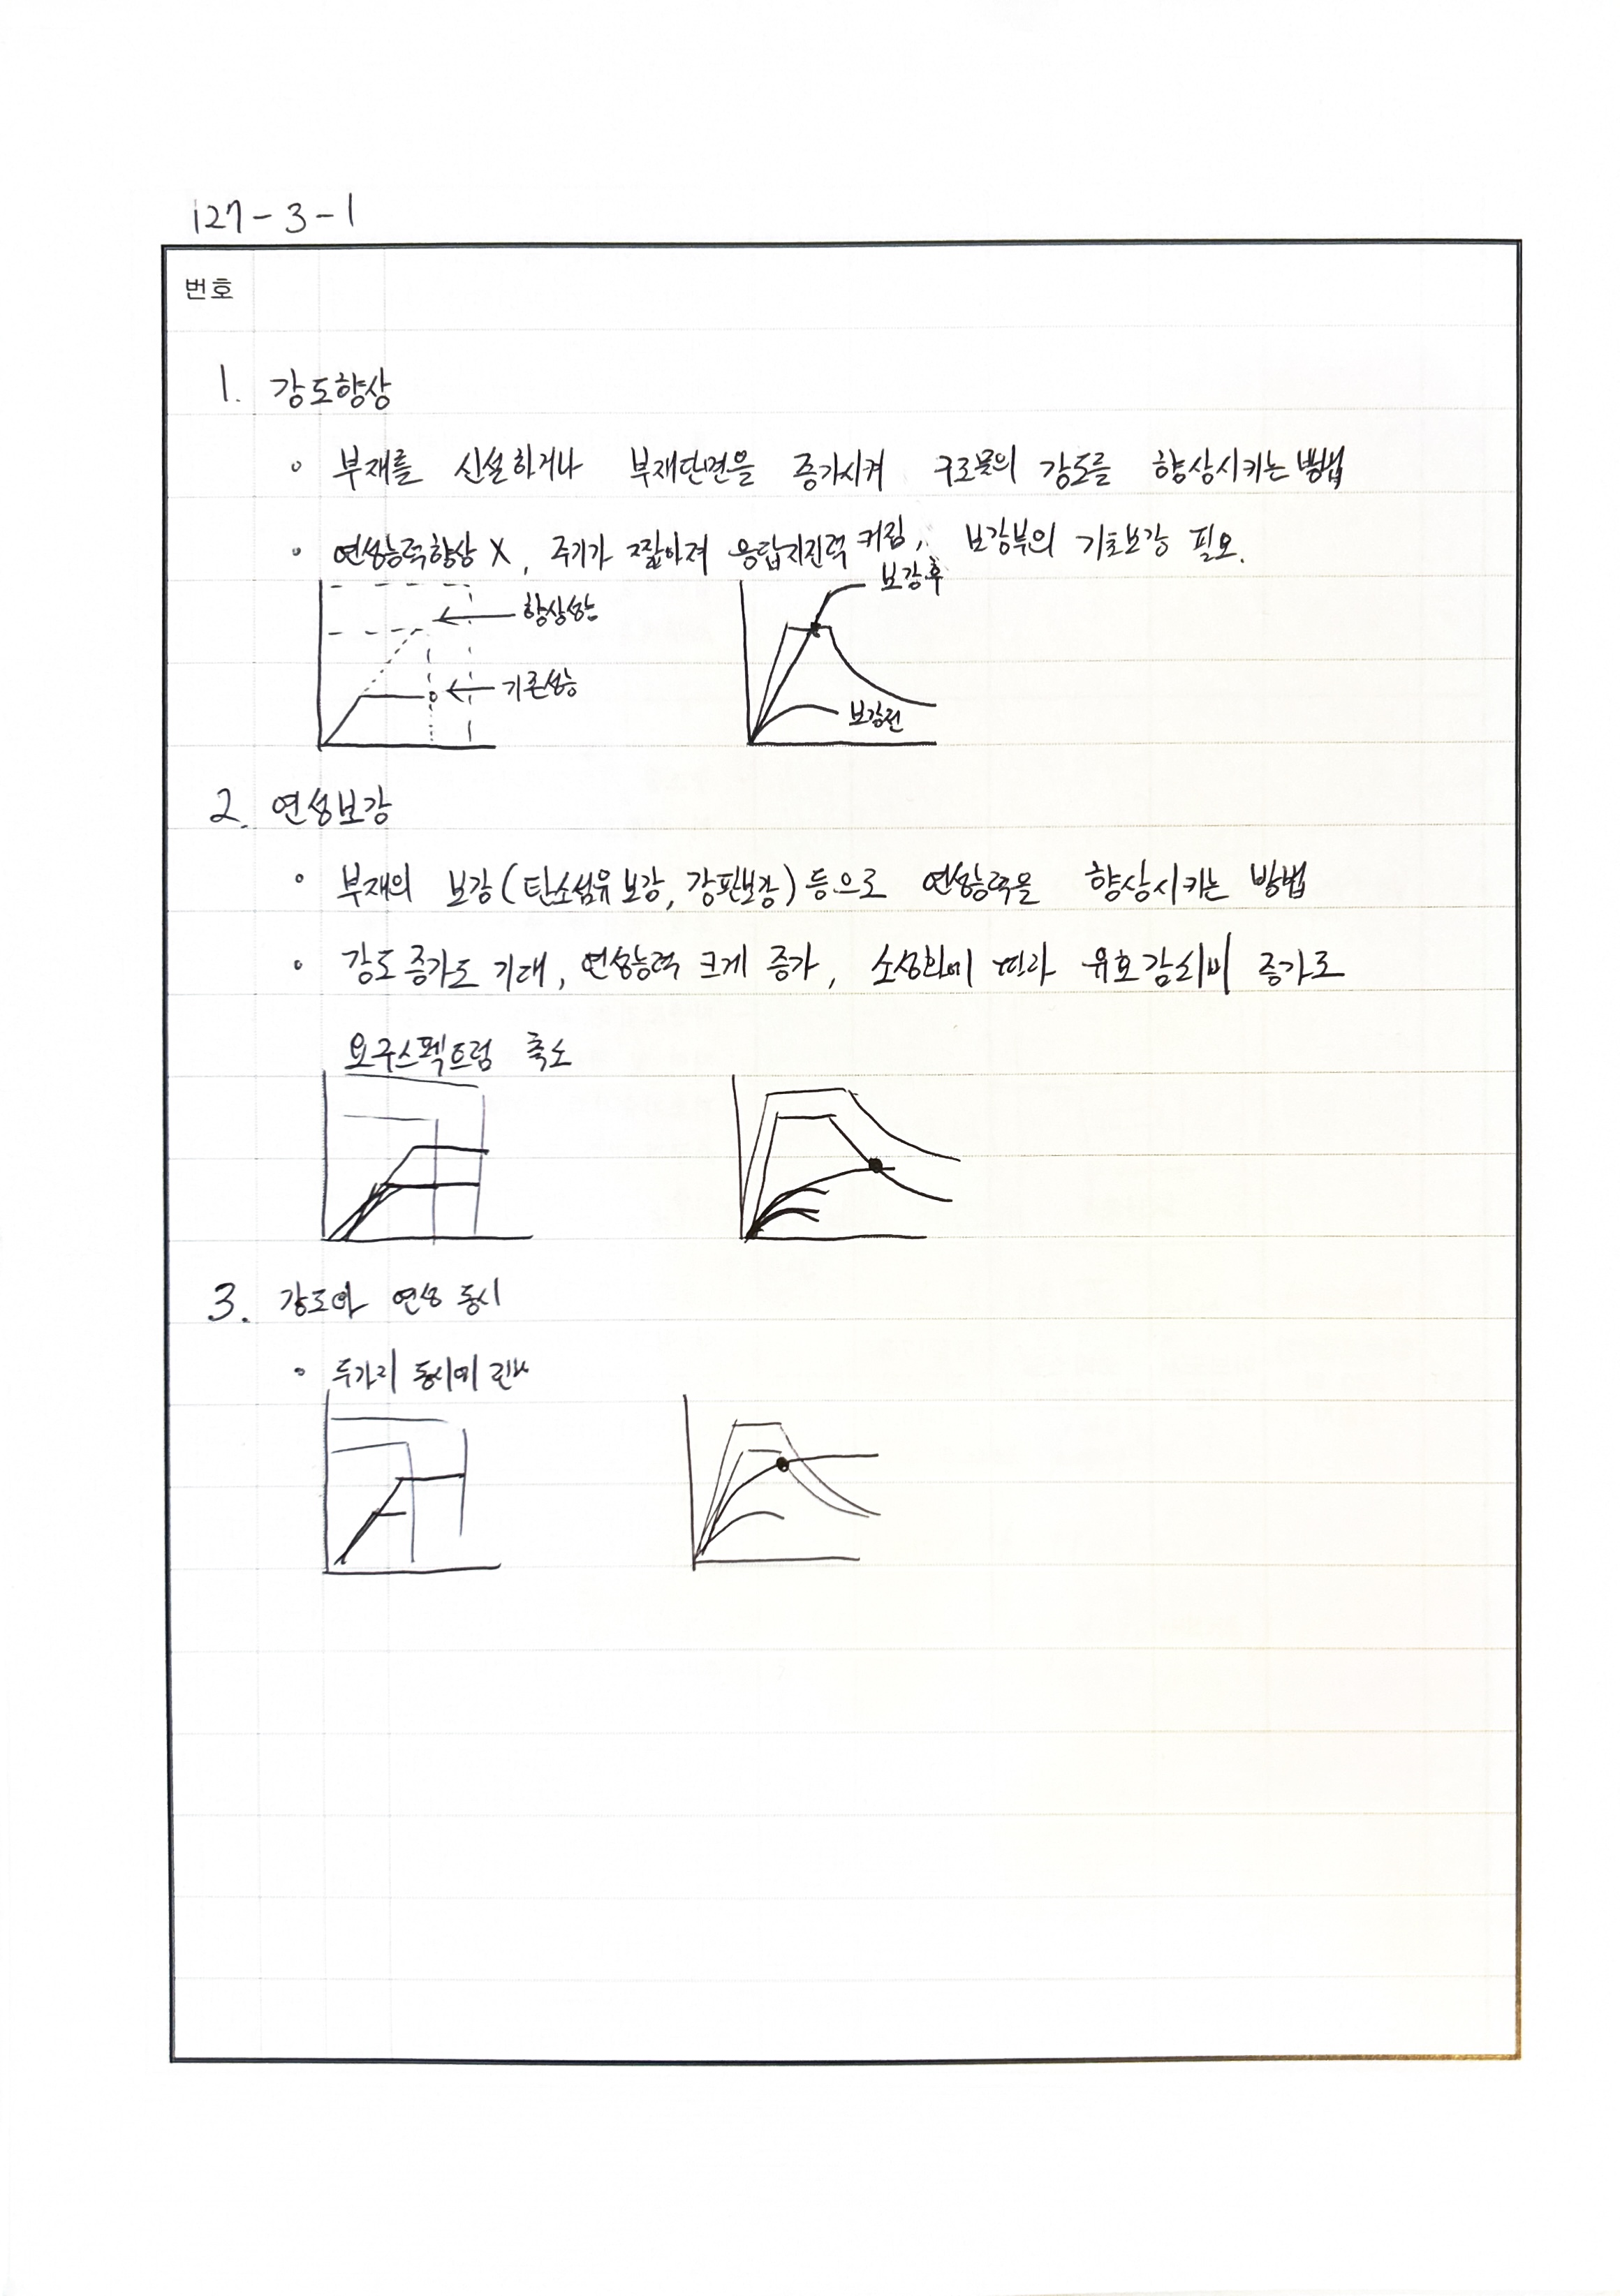 127-3-1
번호
1. 강도향상
◦ 부재를 신설하거나 부재단면을 증가시켜 구조물의 강도를 향상시키는 방법
◦ 연성능력향상 X, 주기가 짧아져 응답지진력 커짐, 보강부의 기초보강 필요.
보강후
향상성능
기존성능
보강전
2. 연성보강
◦ 부재의 보강(탄소섬유보강, 강판보강)등으로 연성능력을 향상시키는 방법
◦ 강도 증가도 기대, 연성능력 크게 증가, 소성화에 따라 유효감쇠비 증가로
요구스펙트럼 축소
3. 강도와 연성 동시
◦ 두가지 동시에